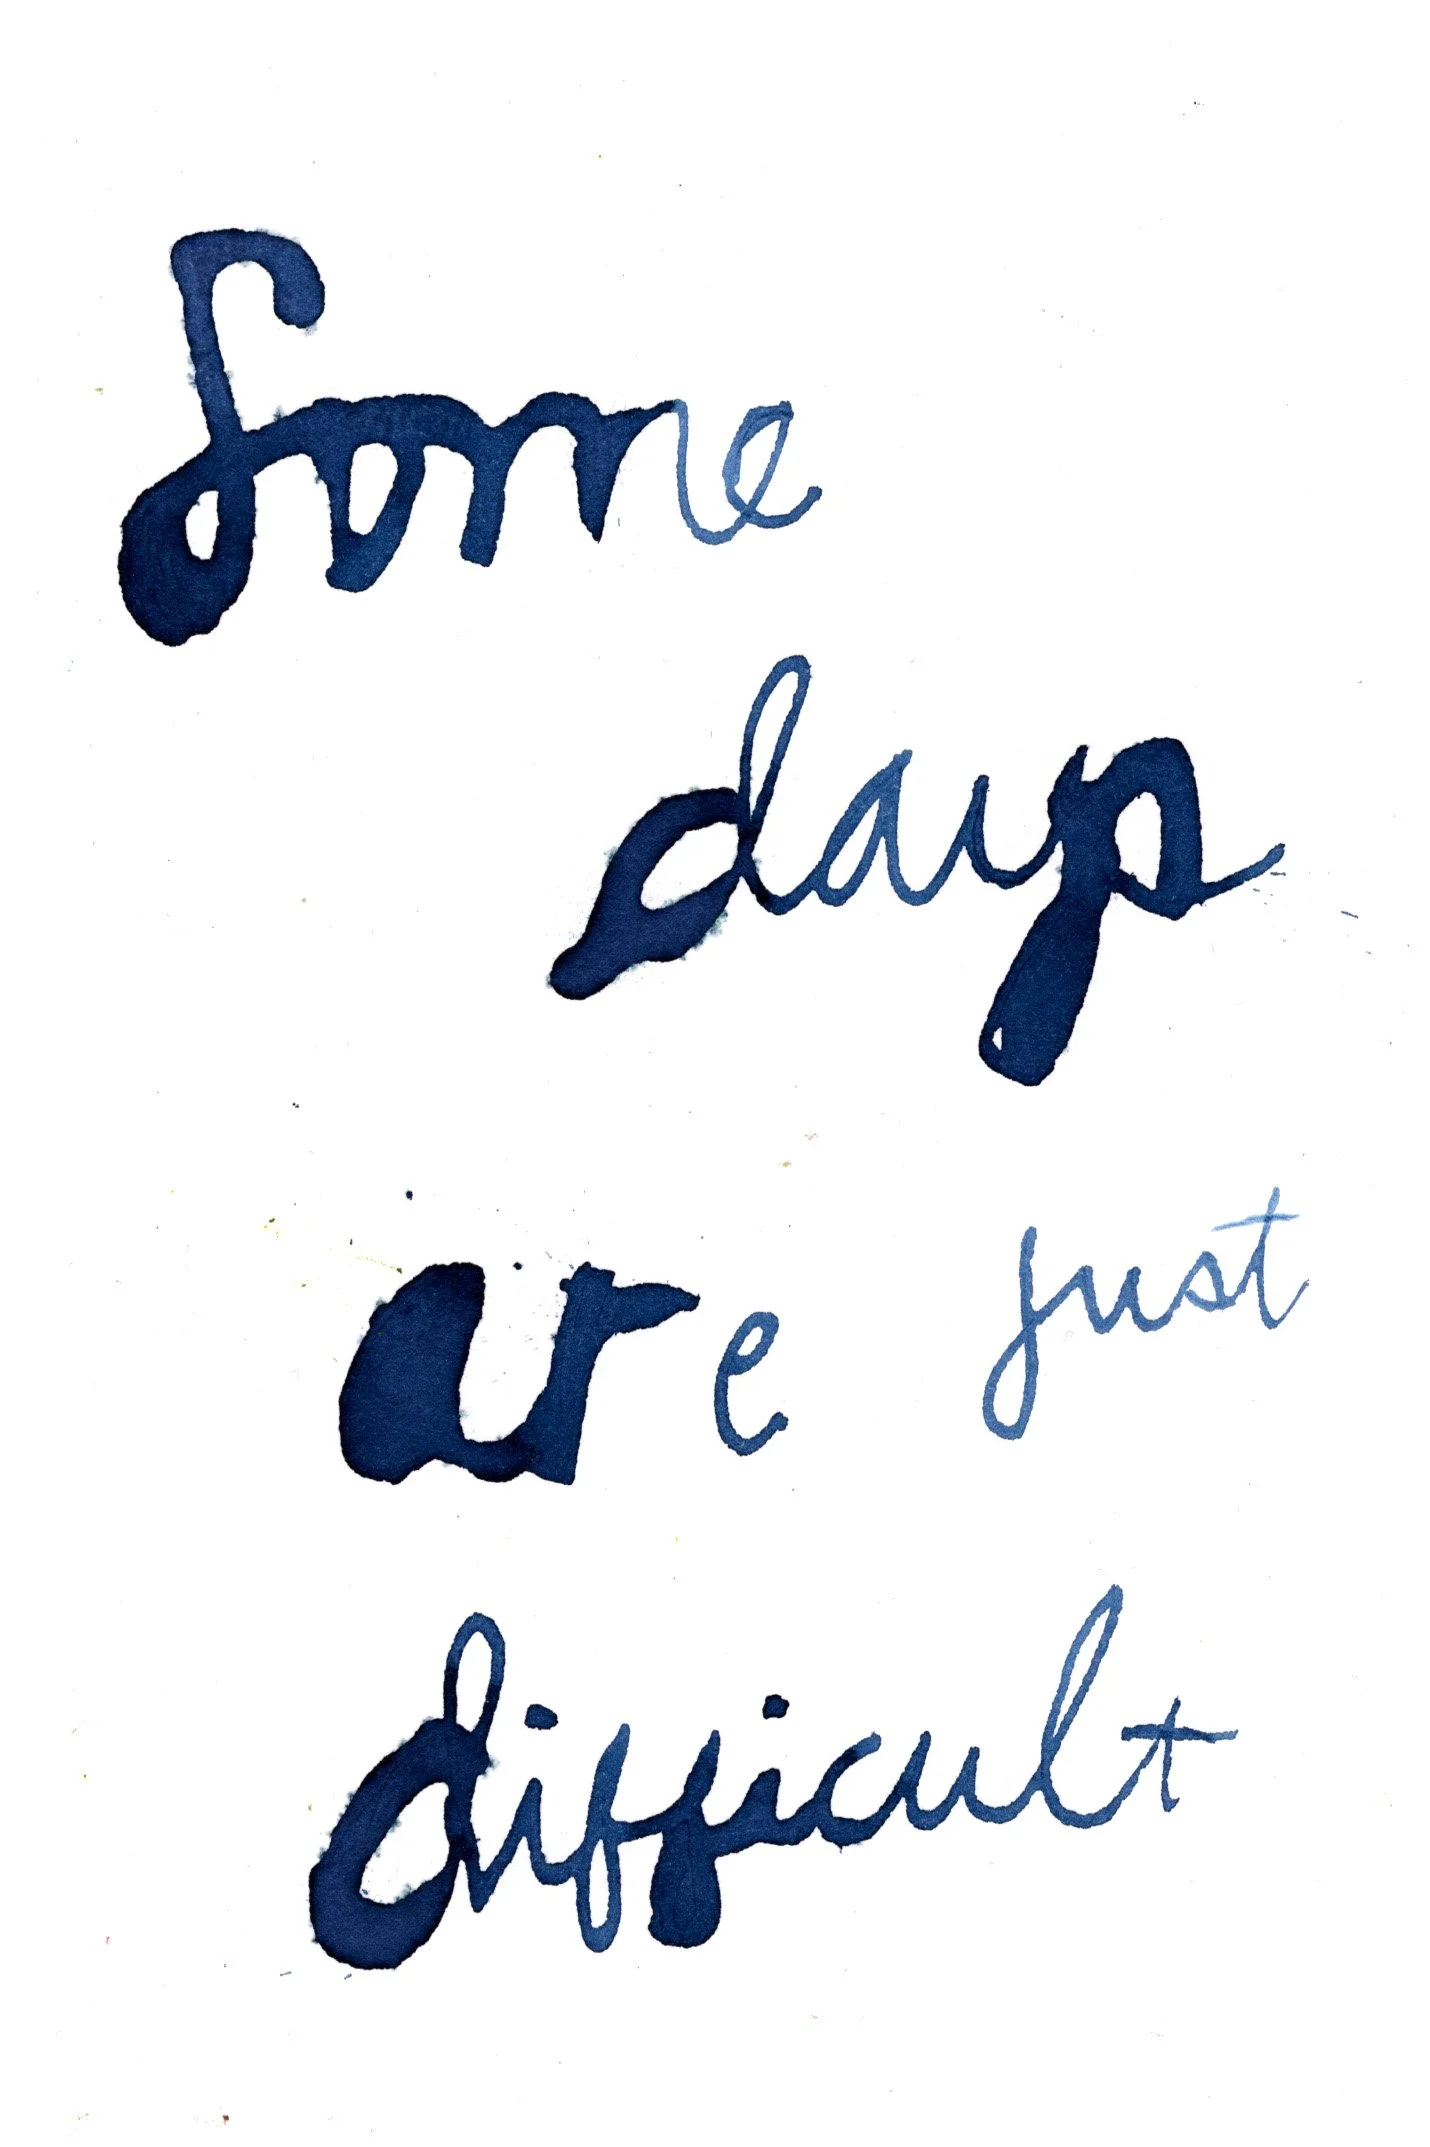 Some
days
are just
difficult